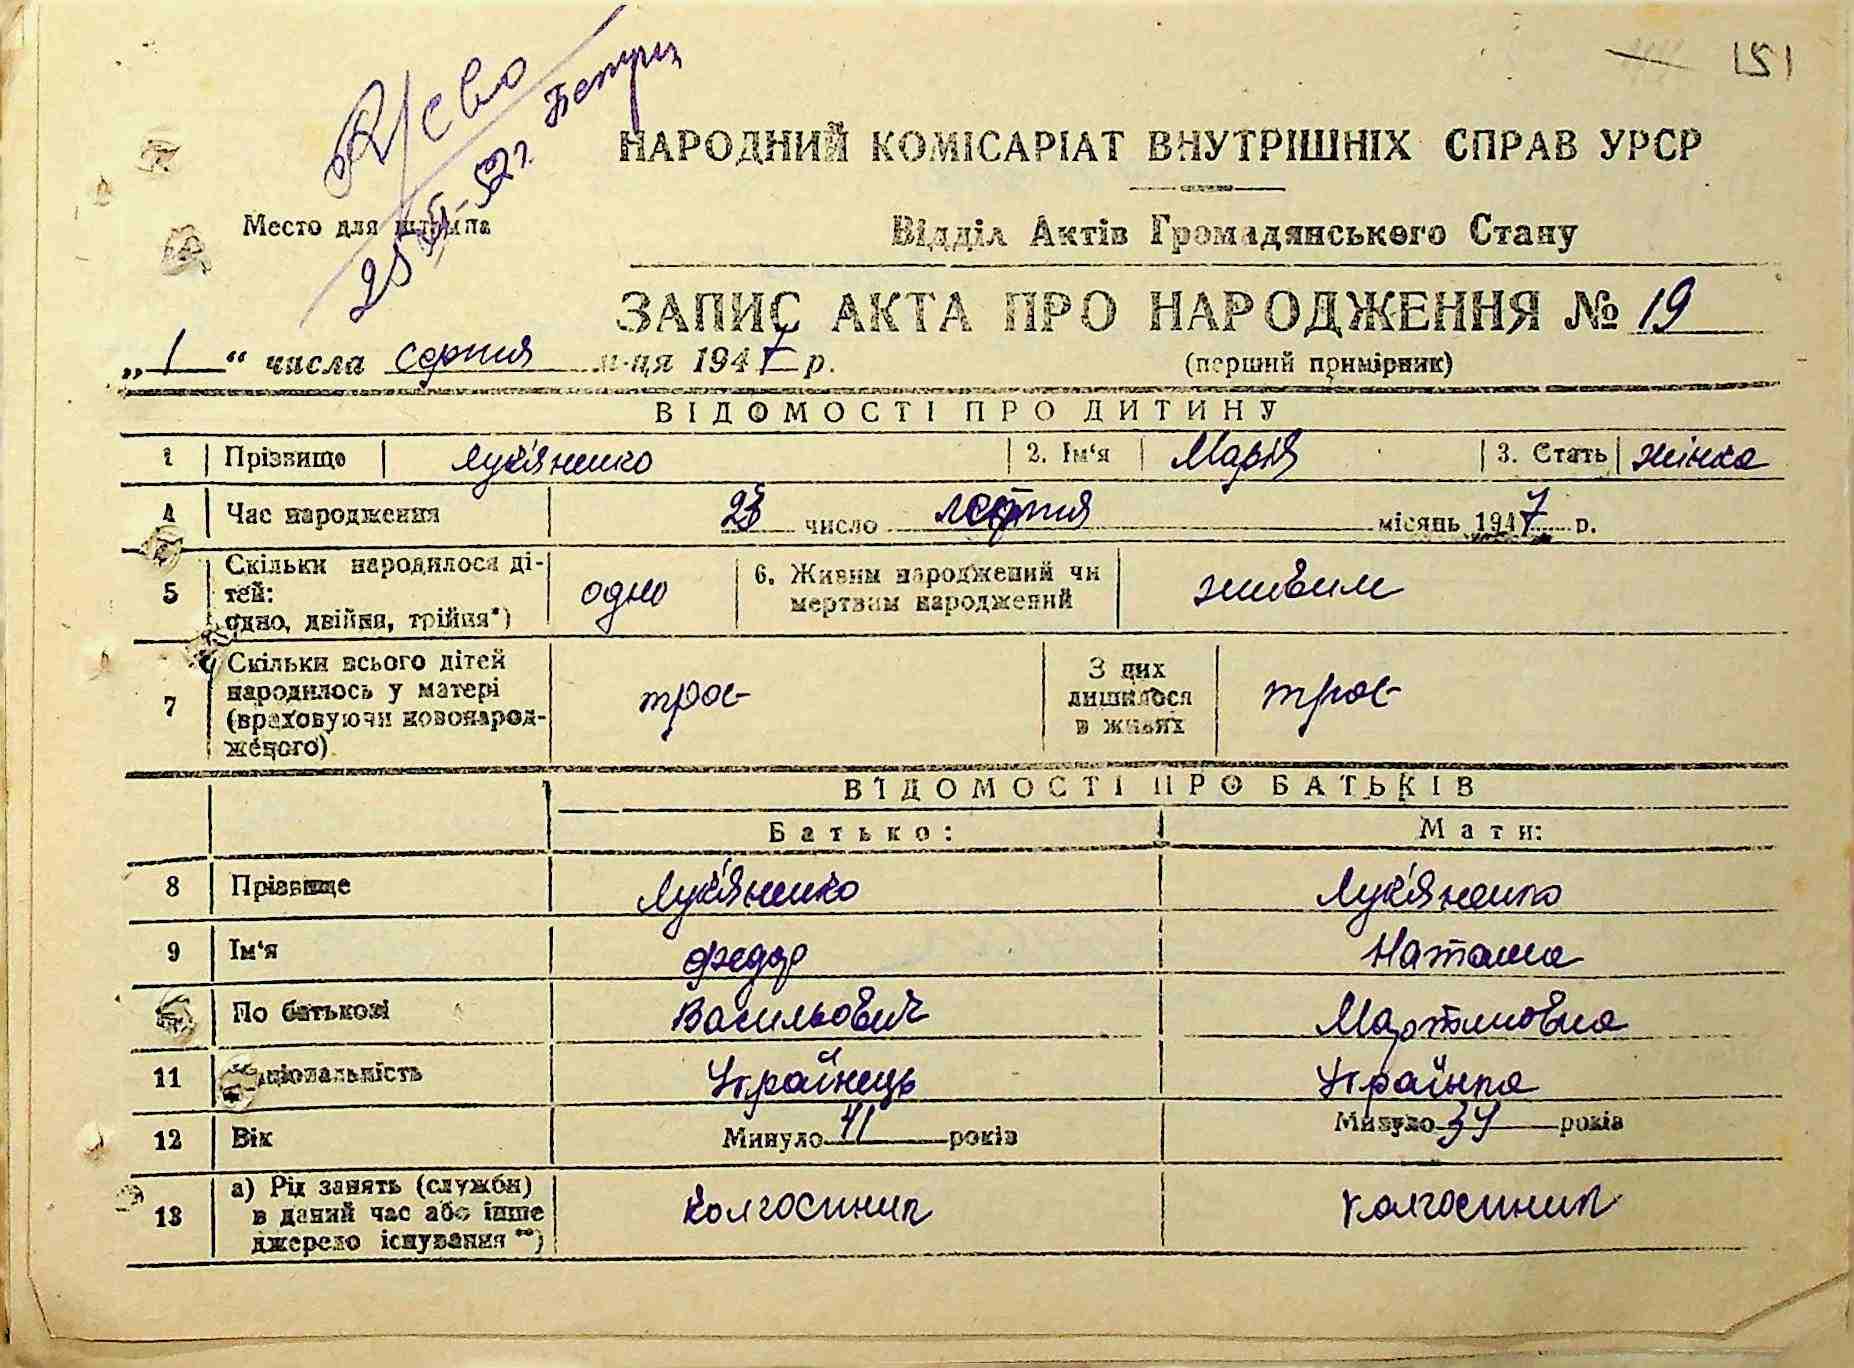 151
НАРОДНИЙ КОМІСАРІАТ ВНУТРІШНІХ СПРАВ УРСР
Место для штампа
Відділ Актів Громадянського Стану
ЗАПИС АКТА ПРО НАРОДЖЕННЯ № 19
„1“ числа серпня м-ця 1947 р.
(перший примірник)
ВІДОМОСТІ ПРО ДИТИНУ
1 Прізвище Лук'яненко 2. Ім'я Марія 3. Стать жінка
4 Час народження 23 число місяць 1947 р.
5 Скільки народилося ді-
тей:
одно, двійня, трійня*) одно 6. Живим народжений чи
мертвим народжений живим
7 Скільки всього дітей
народилось у матері
(враховуючи новонарод-
женого) троє З цих
лишилося
в живих троє
ВІДОМОСТІ ПРО БАТЬКІВ
Батько: Мати:
8 Прізвище Лук'яненко Лук'яненко
9 Ім'я Федор Наташа
По батькові Васильович Мартиновна
11 Національність Українець Українка
12 Вік Минуло 41 років Минуло 34 років
13 а) Рід занять (служби)
в даний час або інше
джерело існування **) колгоспник колгоспник